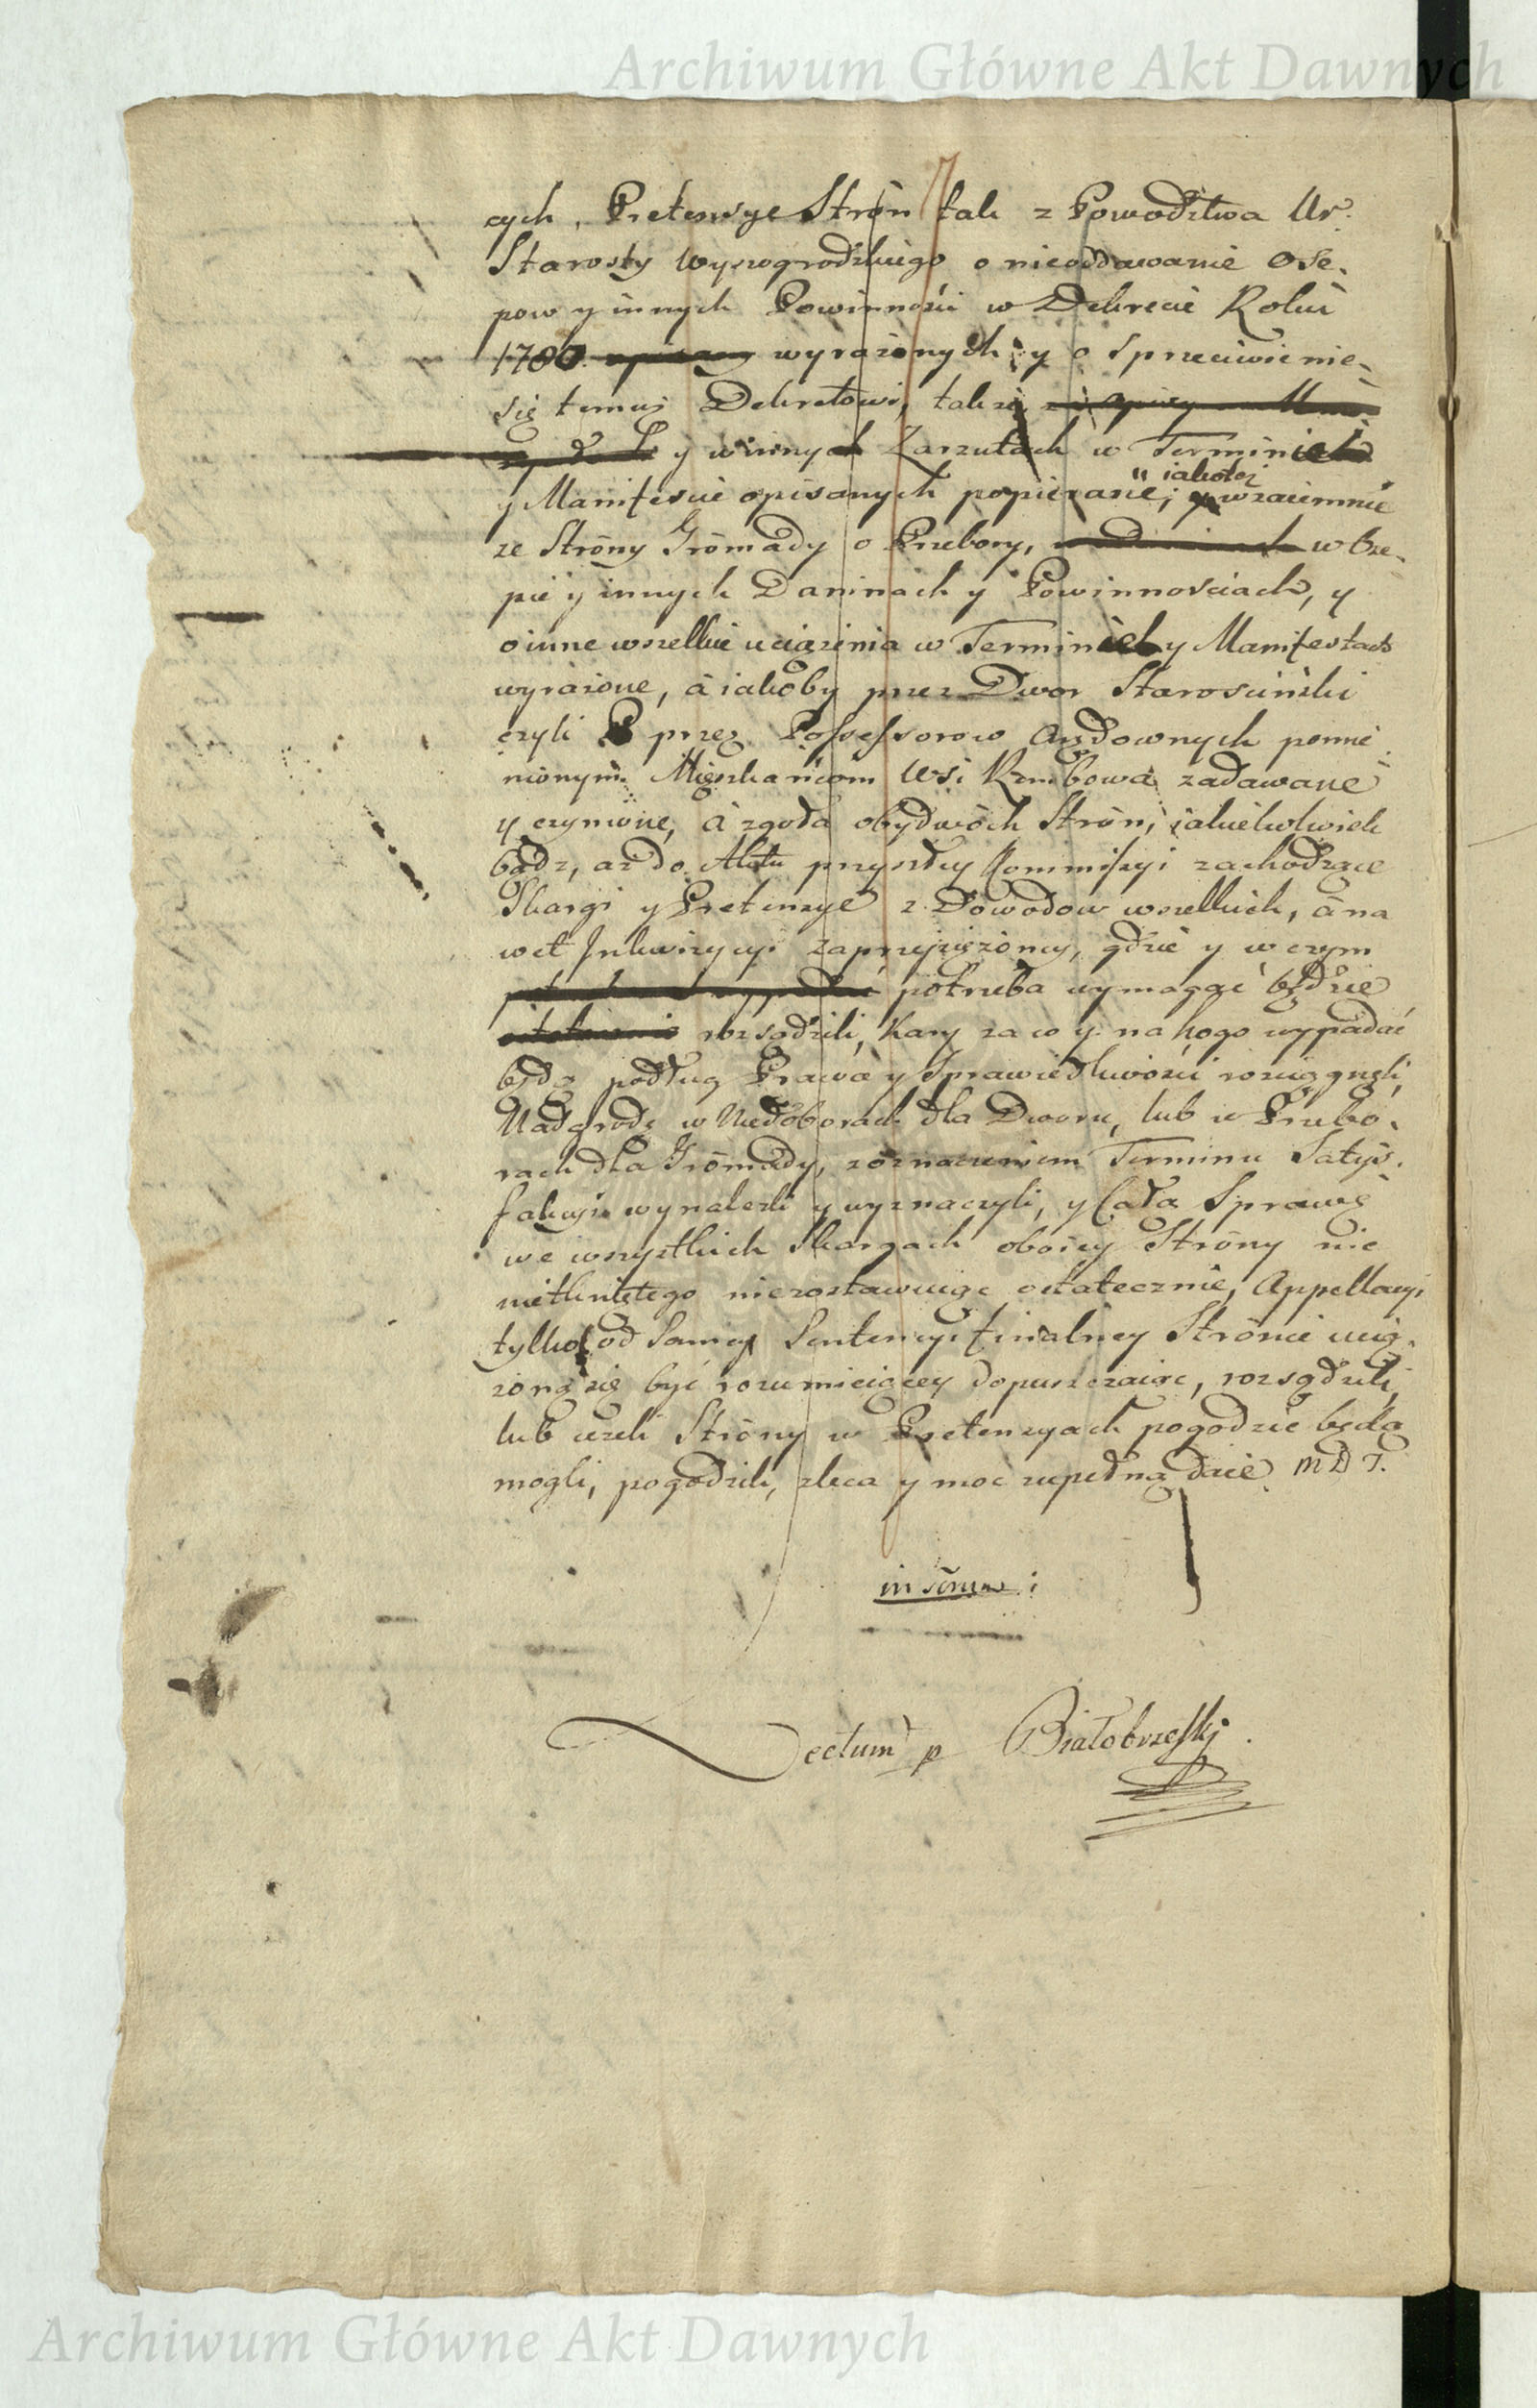 Archiwum Główne Akt Dawnych
cych, Pretensye Strón tak z Powodztwa Ur.
Starosty Wyszogrodzkiego o nieoddawanie Ose-
pow y innych Powinności w Dekrecie Roku
1786. wyrażonych, y o sprzeciwienie
się temuż Dekretowi, także
y w innych Zarzutach w Terminie
y Manifescie opisanych popierane, iakoteż wzaiemnie
ze Stróny Grómady o Przebory, w Ose-
pie y innych Daninach y Powinnosciach, y
o inne wszelkie uciążenia w Terminie y Manifestach
wyrażone, à iakoby przez Dwor Starosciński
czyli przez Possessorow Arędownych pomie-
nionym Mieszkańcom Wsi Rembowa zadawane
y czynione, à zgoła obydwóch Strón, iakiekolwiek
bądz, aż do Aktu przyszłey Kommissyi zachodzące
Skargi y Pretensye z Dowodow wszelkich, à na
wet Inkwizycyi zaprzysiężoney, gdzie y w czym
potrzeba wymagać będzie
rozsądzili, Kary za co y na kogo wypadać
będą podług Prawa y Sprawiedliwości rozciągneli,
Nadgrodę w Niedoborach dla Dworu, lub w Przebo-
rach dla Grómady, z oznaczeniem Terminu Satys-
fakcyi wynalezli y wyznaczyli, y Całą Sprawę
we wszystkich Skargach oboiey Stróny nic
nietkniętego niezostawuiąc ostatecznie, Appellacyi
tylko od Samey Sentencyi finalney Strónie ucią-
żoną się być rozumieiącey dopuszczaiąc, rozsądzili,
lub ieżeli Stróny w Pretensyach pogodzić będą
mogli, pogodzili, zleca y moc zupełną daie. M D T.
Lectum p Białobrzeski
Archiwum Główne Akt Dawnych